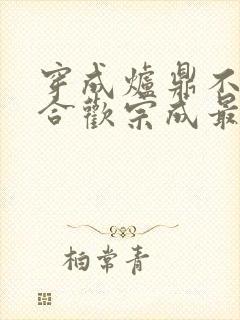 穿成爐鼎不
合歡宗成最
柏常青